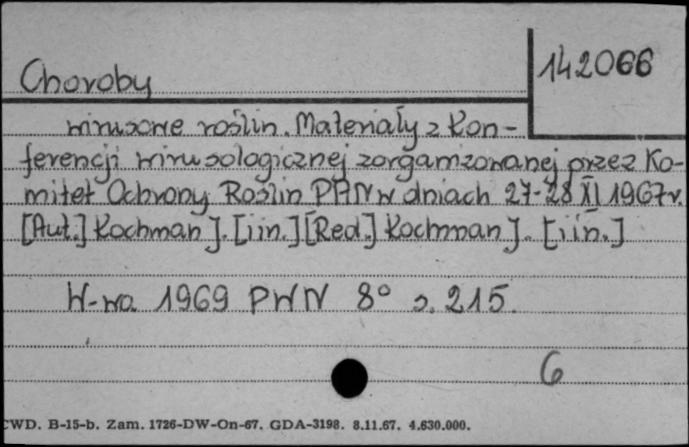 142066
Choroby
wirusowe roślin. Materiały z kon-
ferencji wirusologicznej zorganizowanej przez Ko-
mitet Ochrony Roślin PAN w dniach 27-28 XI 1967 r.
[Aut.] Kochman J. [i in.] [Red.] Kochman J. [i in.]
W-wa 1969 PWN 8° s. 215.
6
CWD. B-15-b. Zam. 1726-DW-On-67. GDA-3198. 8.11.67. 4.630.000.